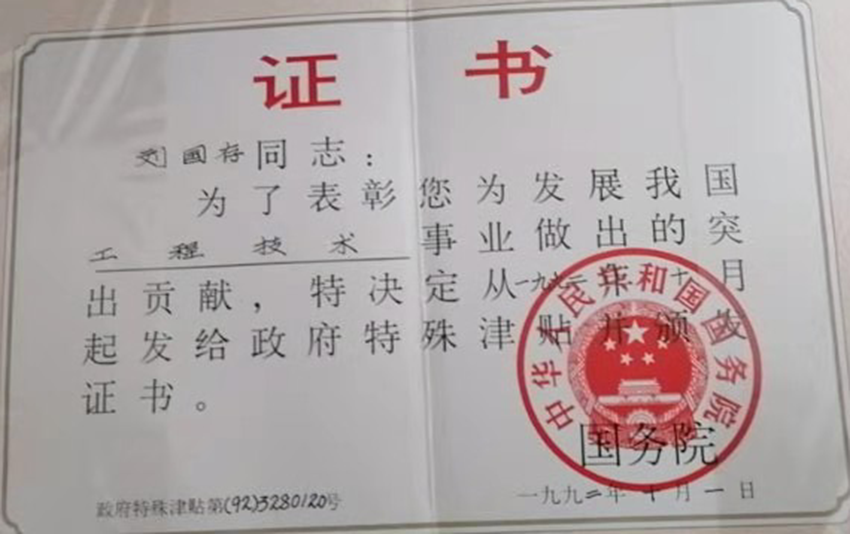 证书
刘国存同志：
为了表彰您为发展我国
工程技术事业做出的突
出贡献，特决定从一九九二年十月
起发给政府特殊津贴并颁发
证书。
中华人民共和国国务院
国务院
政府特殊津贴第(92)3280120号
一九九二年十月一日